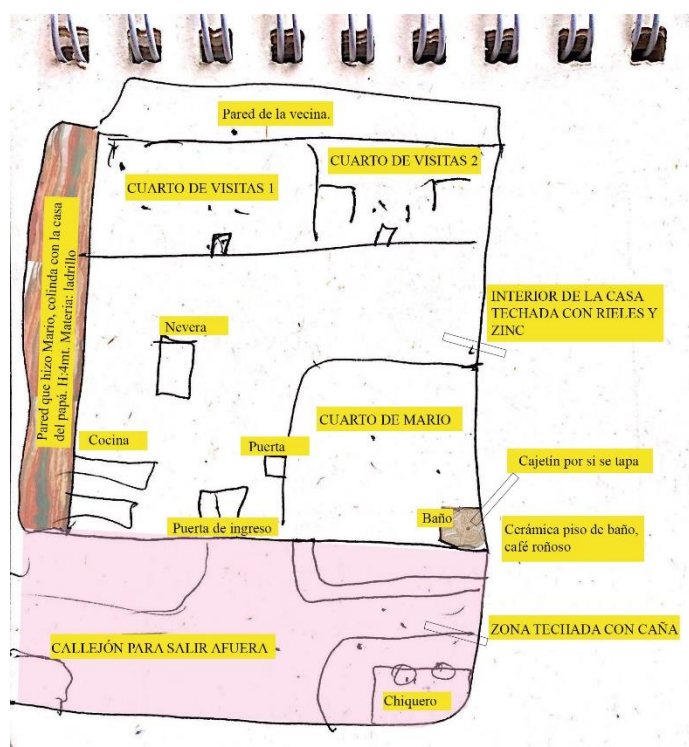 Pared de la vecina.
CUARTO DE VISITAS 1
CUARTO DE VISITAS 2
Pared que hizo Mario, colinda con la casa
del papá. H:4mt. Materia: ladrillo
INTERIOR DE LA CASA
TECHADA CON RIELES Y
ZINC
Nevera
CUARTO DE MARIO
Cocina
Puerta
Cajetín por si se tapa
Puerta de ingreso
Baño
Cerámica piso de baño,
café roñoso
CALLEJÓN PARA SALIR AFUERA
ZONA TECHADA CON CAÑA
Chiquero